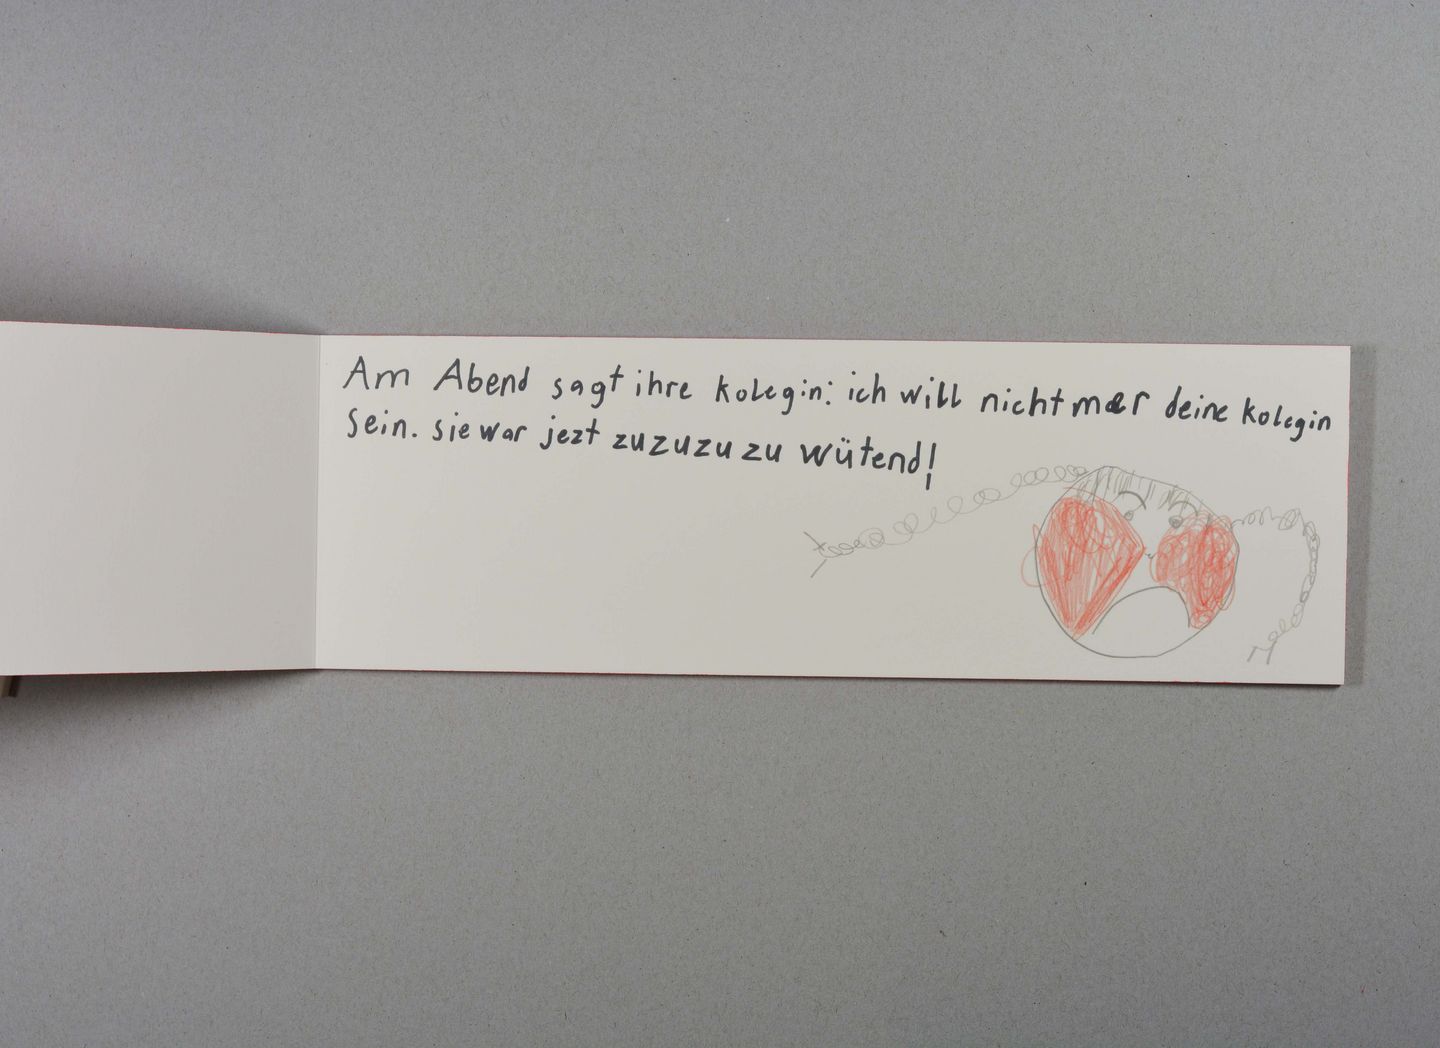 Am Abend sagt ihre kolegin: ich will nicht mer deine kolegin
sein. sie war jezt zuzuzuzu wütend!